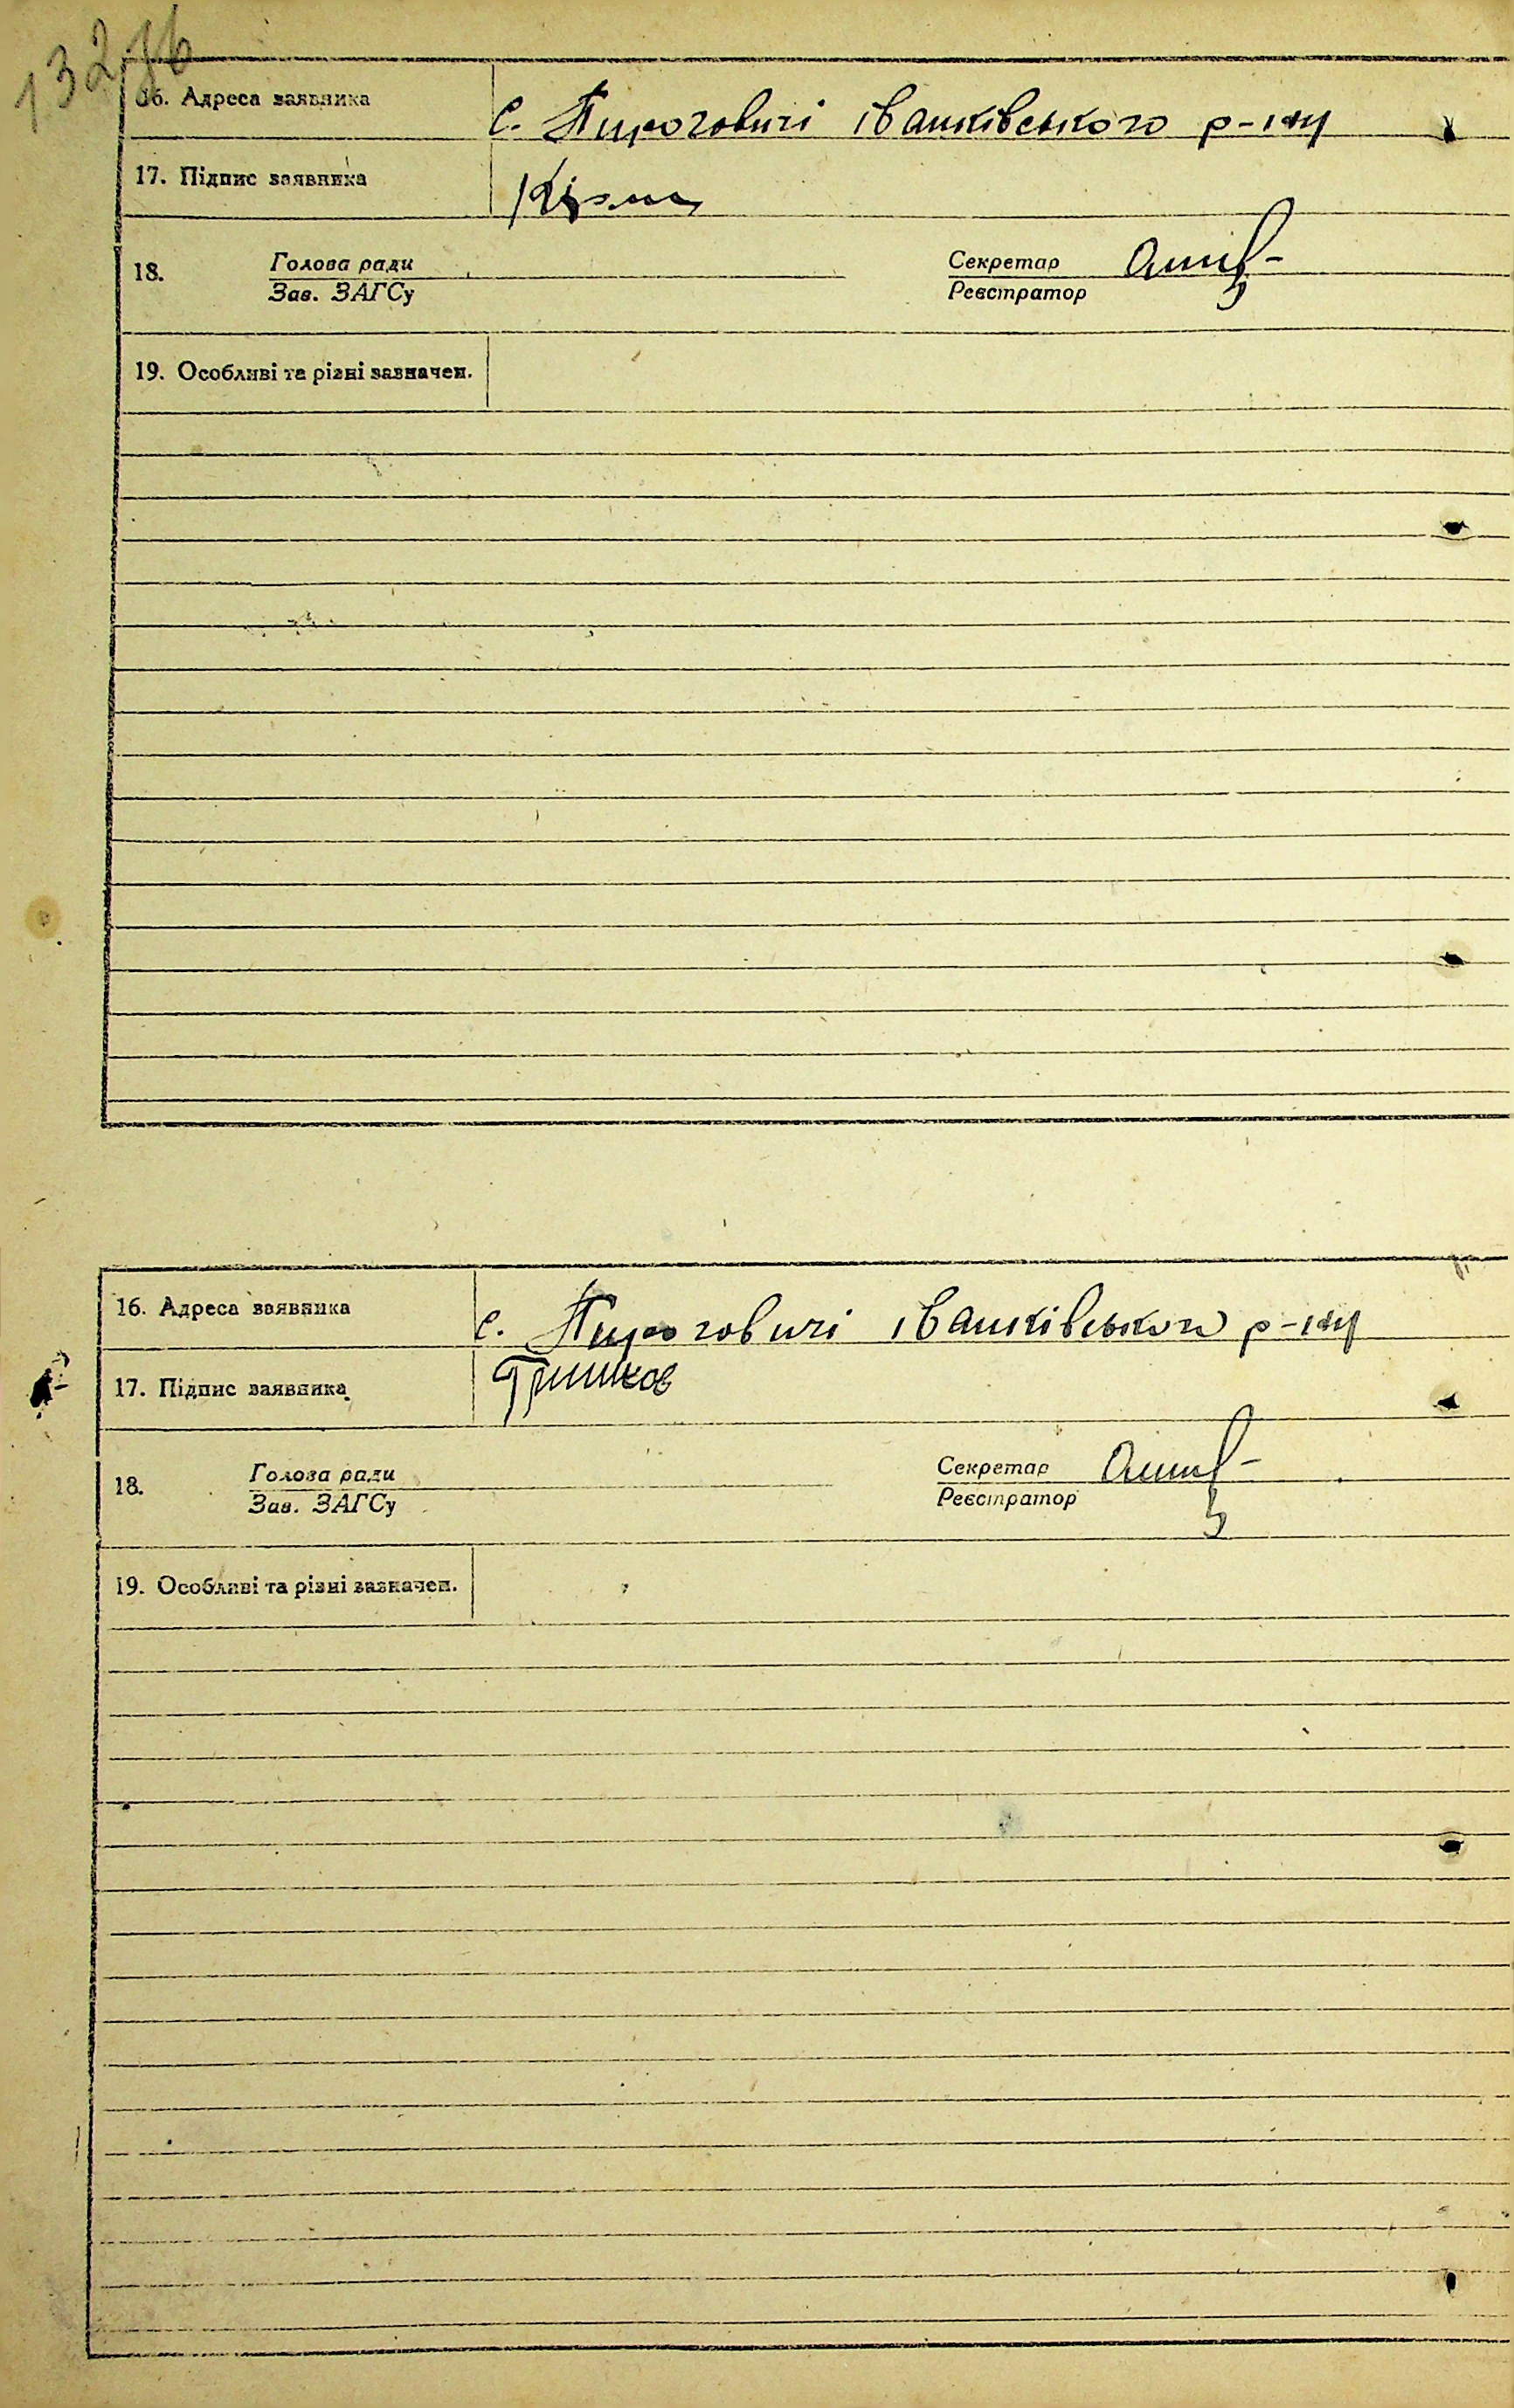 132зв
16. Адреса заявника с. Пироговичі іванківського р-ну
17. Підпис заявника
18. Голова ради Секретар
Зав. ЗАГСу Реєстратор
19. Особливі та різні зазначен.
16. Адреса заявника с. Пироговичі іванківського р-ну
17. Підпис заявника Гришков
18. Голова ради Секретар
Зав. ЗАГСу Реєстратор
19. Особливі та різні зазначен.